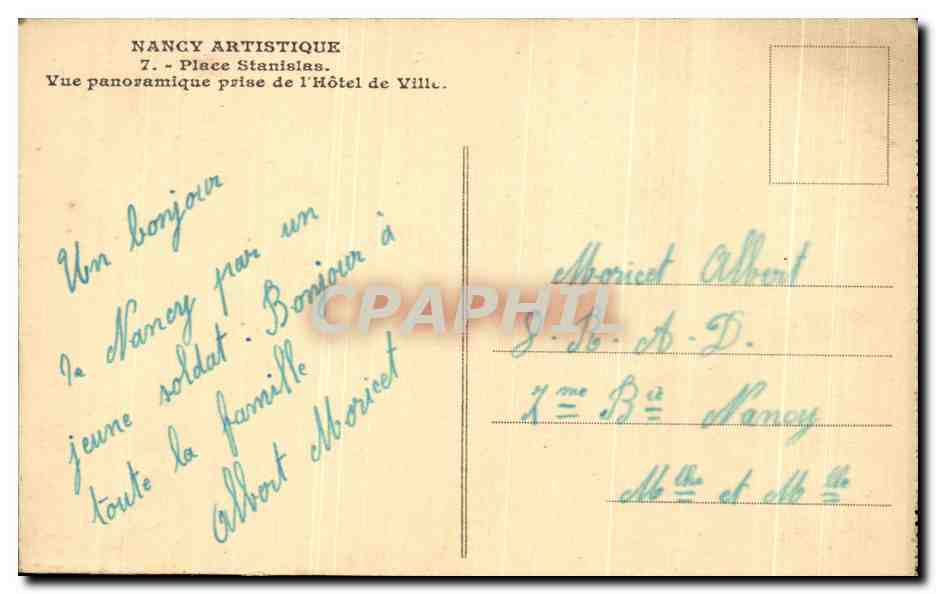 NANCY ARTISTIQUE
7. - Place Stanislas.
Vue panoramique prise de l'Hôtel de Ville.
Un bonjour
de Nancy par un
jeune soldat. Bonjour à
toute la famille
Albert Moricet
Moricet Albert
8. R. A. D.
7me Bie Nancy
Mlle et Mlle
CPAPHIL